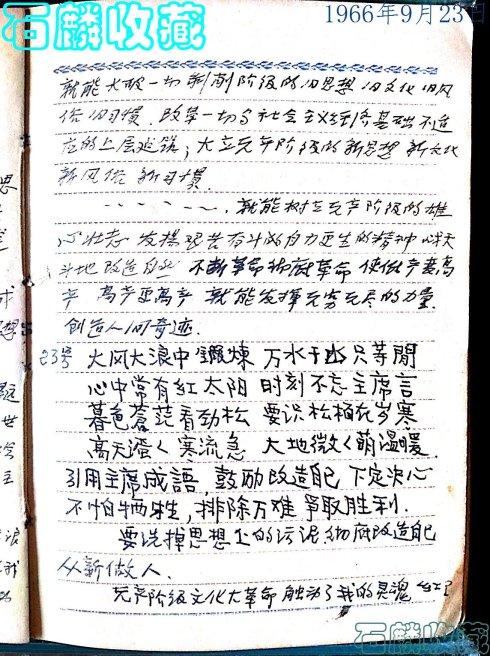 石麟收藏
1966年9月23日
就能大破一切剥削阶级的旧思想 旧文化 旧风
俗 旧习惯. 改革一切与社会主义经济基础不适
应的上层建筑; 大立无产阶级的新思想 新文化
新风俗 新习惯.
就能树立无产阶级的雄
心壮志 发扬艰苦奋斗的自力更生的精神 战天
斗地 改造自然 不断革命彻底革命 使低产变高
产 高产更高产 就能发挥无穷无尽的力量.
创造人间奇迹.
23号 大风大浪中鍛煉 万水千山只等閒
心中常有紅太阳 时刻不忘主席言
暮色蒼茫看劲松 要识松柏在岁寒
高天滚く寒流急 大地微く萌温暖.
引用主席成語, 鼓励改造自己 下定决心
不怕牺牲, 排除万难 爭取胜利.
要洗掉思想上的污泥 彻底改造自己
从新做人.
无产阶级文化大革命 触动了我的灵魂
石麟收藏